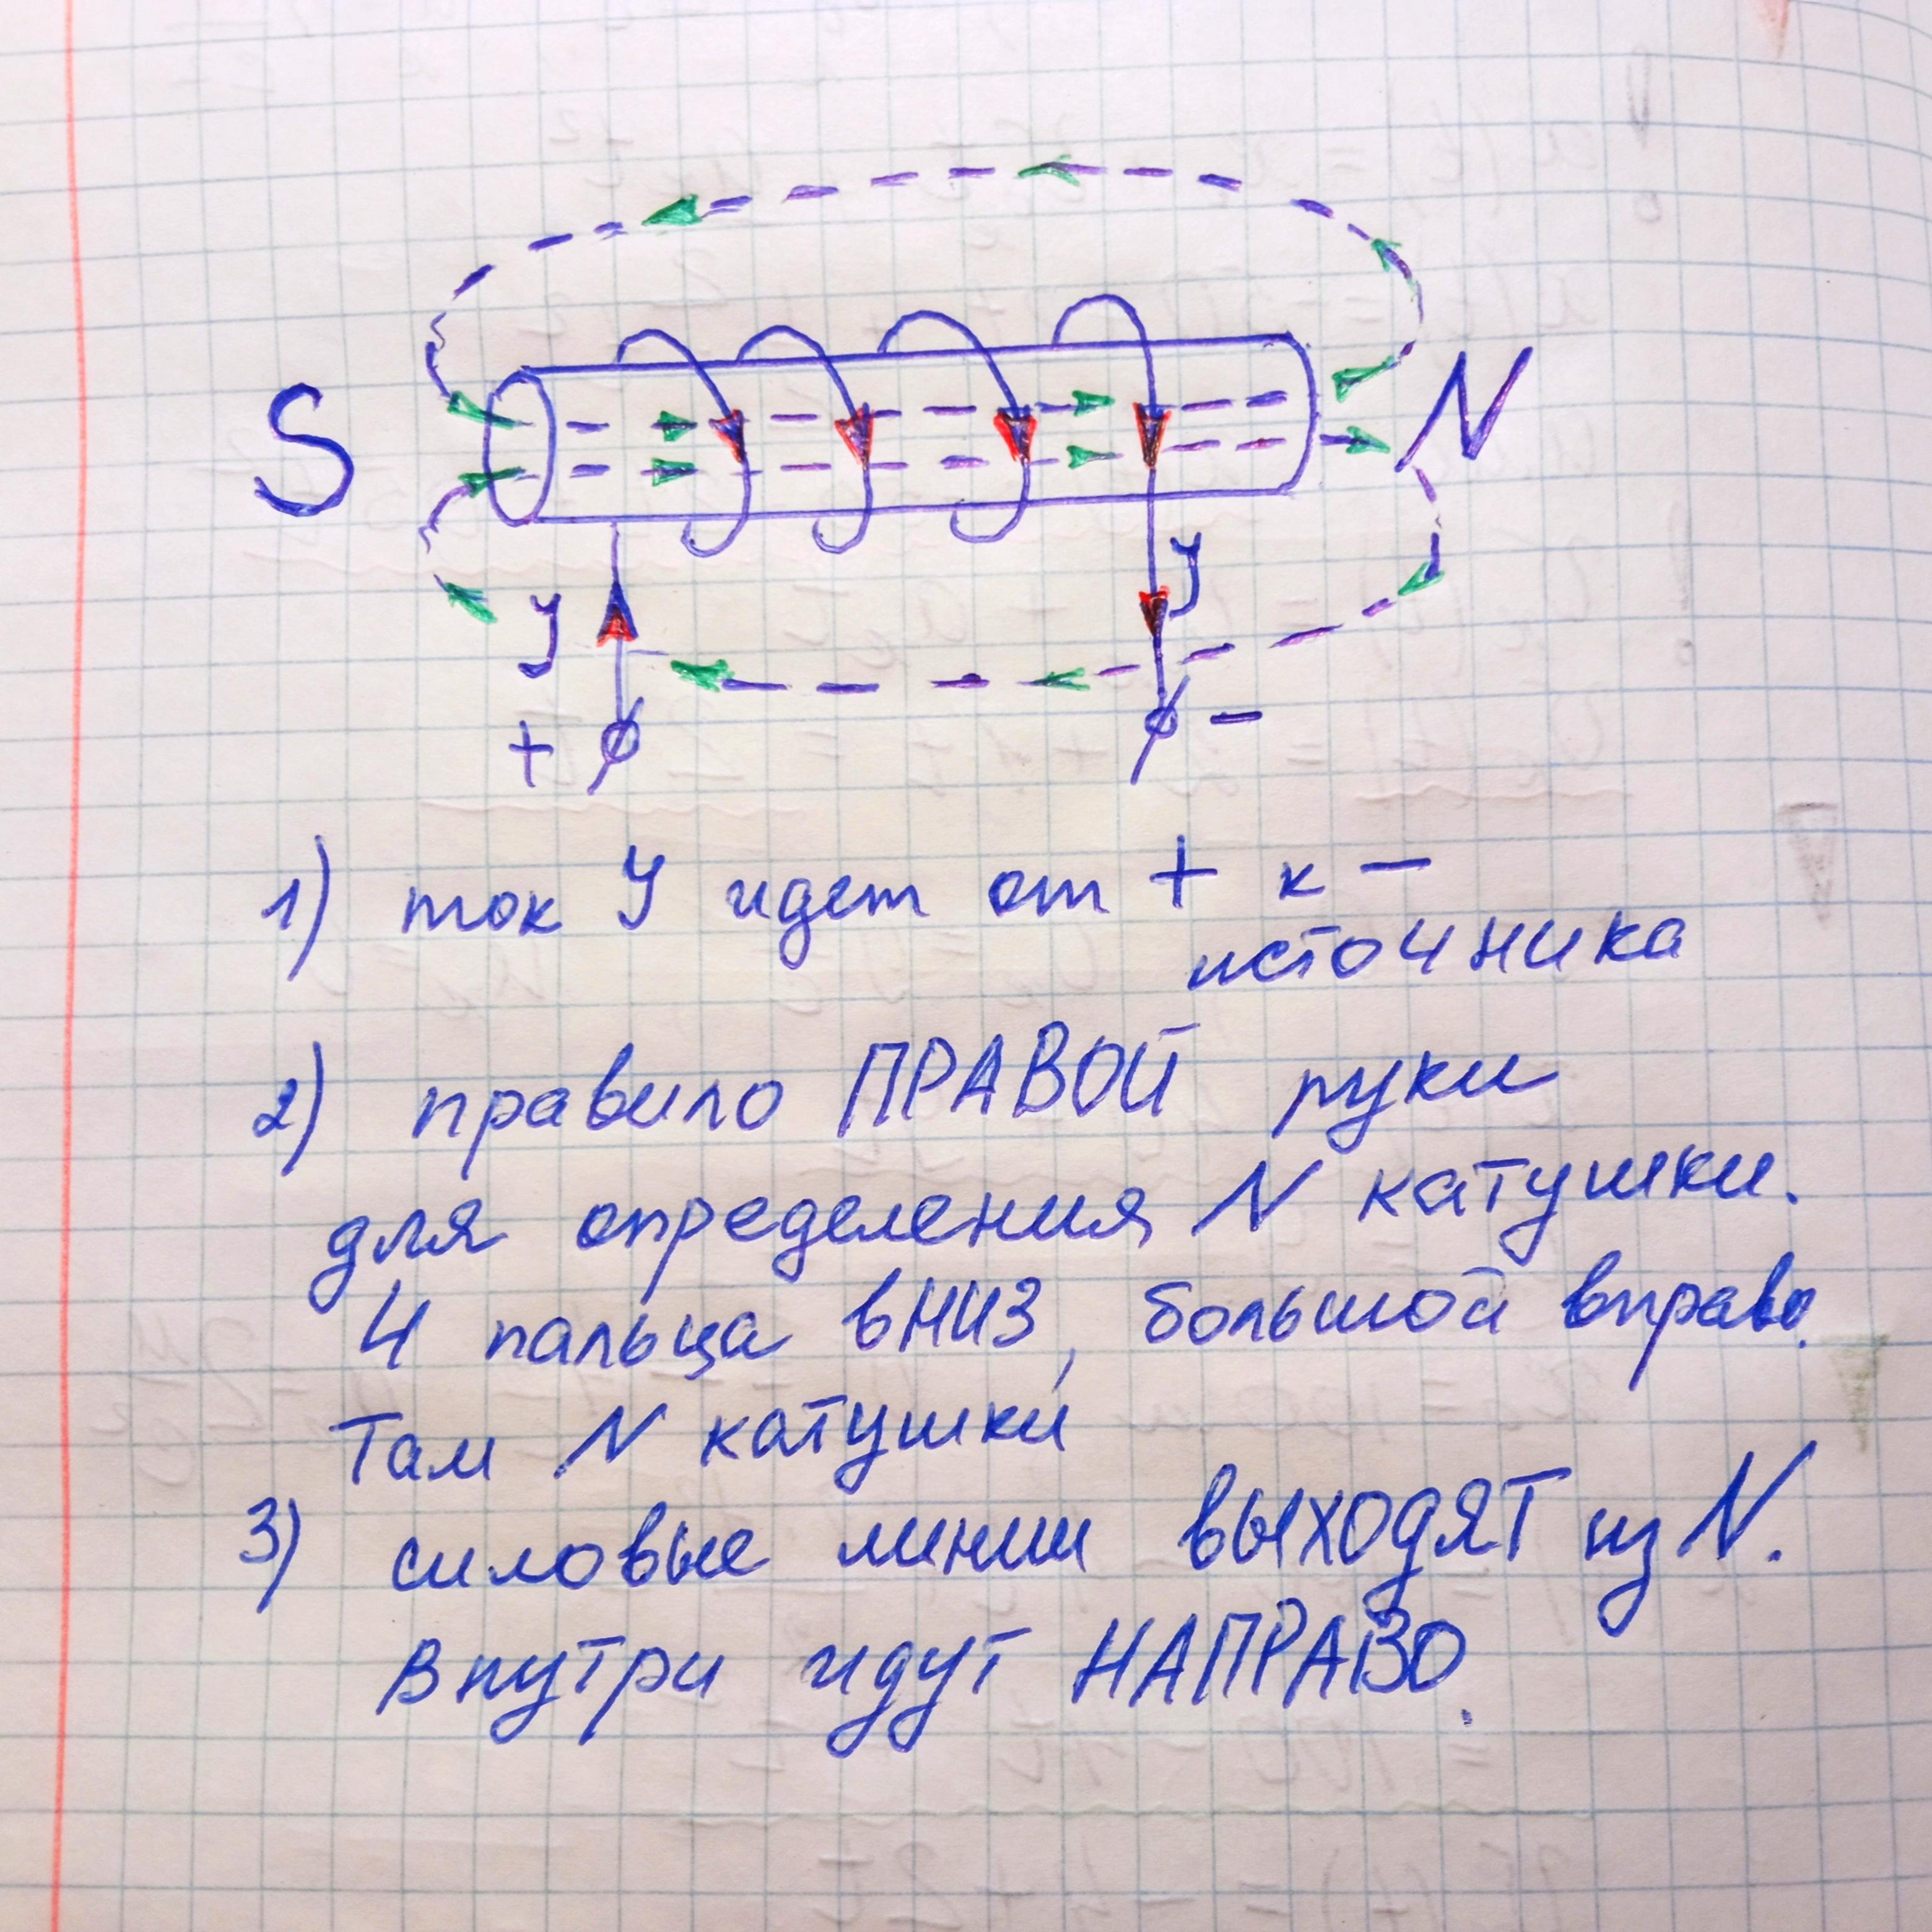 S
N
У
У
+
-
1) ток У идет от + к -
источника
2) правило ПРАВОЙ руки
для определения N катушки.
4 пальца вНИЗ, большой вправо.
Там N катушки
3) силовые линии ВЫХОДЯТ из N.
Внутри идут НАПРАВО.